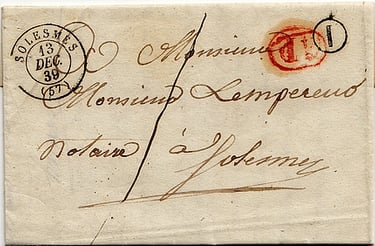 SOLESMES
13
DEC.
39
(57)
I
Monsieur
Monsieur Lempereur
Notaire à Solesmes